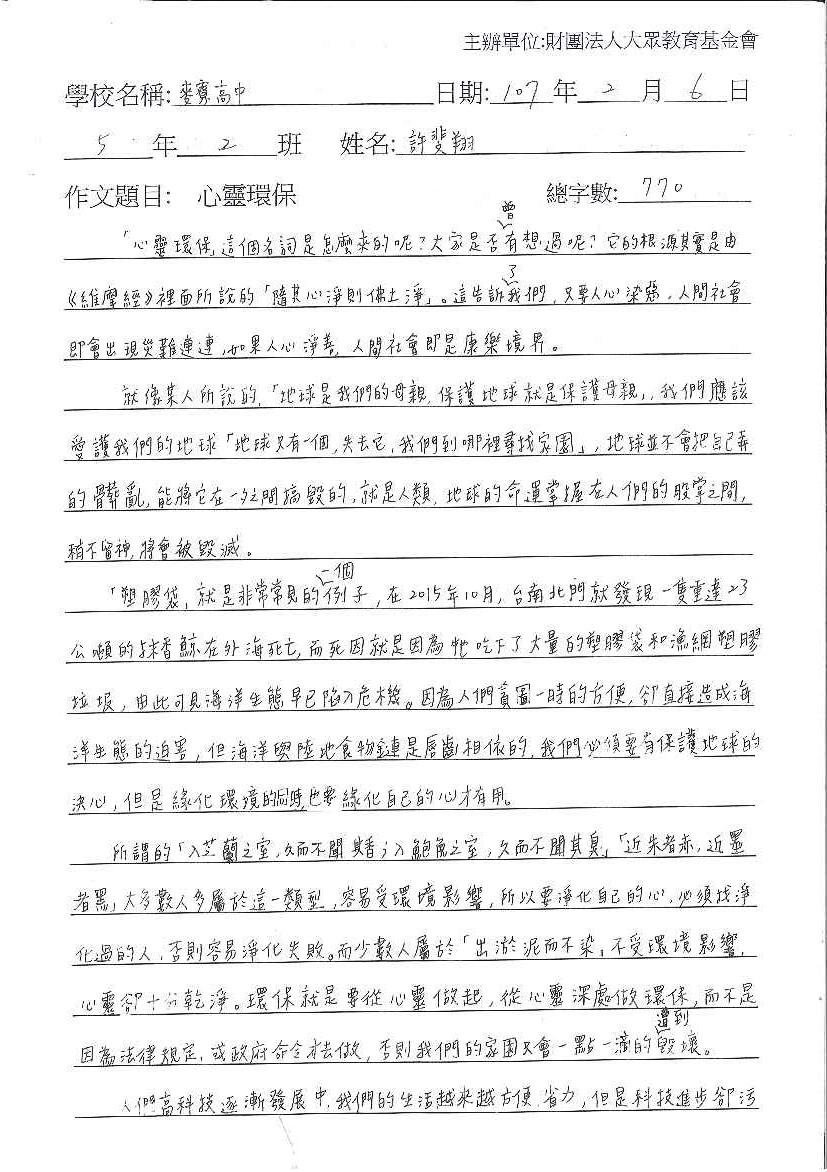 主辦單位:財團法人大眾教育基金會
學校名稱:麥寮高中 日期:107年2月6日
5年2班 姓名:許斐翔
作文題目: 心靈環保 總字數:770
「心靈環保」這個名詞是怎麼來的呢?大家是否曾有想過呢?它的根源其實是由
《維摩經》裡面所說的「隨其心淨則佛土淨」。這告訴了我們,只要人心染惡,人間社會
即會出現災難連連,如果人心淨善,人間社會即是康樂境界。
就像某人所說的,「地球是我們的母親,保護地球就是保護母親」,我們應該
愛護我們的地球「地球只有一個,失去它,我們到哪裡尋找家園」,地球並不會把自己弄
的髒亂,能將它在一夕之間搞毀的,就是人類,地球的命運掌握在人們的股掌之間,
稍不留神,將會被毀滅。
「塑膠袋」就是非常常見的一個例子,在2015年10月,台南北門就發現一隻重達23
公噸的抹香鯨在外海死亡,而死因就是因為牠吃下了大量的塑膠袋和漁網塑膠
垃圾,由此可見海洋生態早已陷入危機。因為人們貪圖一時的方便,卻直接造成海
洋生態的迫害,但海洋與陸地食物鏈是唇齒相依的,我們必須要有保護地球的
決心,但是綠化環境的同時,也要綠化自己的心才有用。
所謂的「入芝蘭之室,久而不聞其香;入鮑魚之室,久而不聞其臭」「近朱者赤,近墨
者黑」大多數人多屬於這一類型,容易受環境影響,所以要淨化自己的心,必須找淨
化過的人,否則容易淨化失敗。而少數人屬於「出淤泥而不染」不受環境影響,
心靈卻十分乾淨。環保就是要從心靈做起,從心靈深處做環保,而不是
因為法律規定,或政府命令才去做,否則我們的家園只會一點一滴的遭到毀壞。
人們高科技逐漸發展中,我們的生活越來越方便、省力,但是科技進步卻污